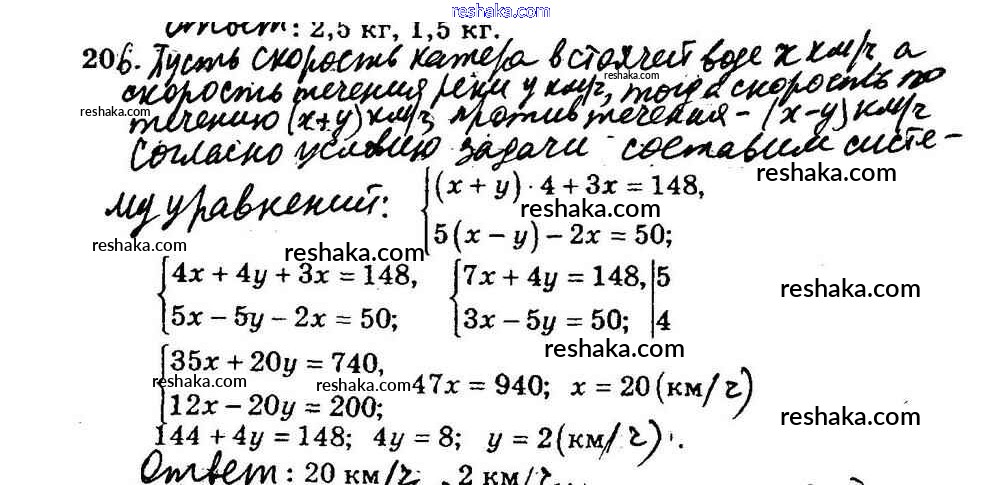 reshaka.com
Ответ: 2,5 кг, 1,5 кг.
206. Пусть скорость катера в стоячей воде x км/ч, а
reshaka.com
скорость течения реки y км/ч, тогда скорость по
reshaka.com
течению (x+y) км/ч, против течения - (x-y) км/ч
Согласно условию задачи составим систе-
reshaka.com
му уравнений: {(x + y) · 4 + 3x = 148,
reshaka.com
5(x − y) − 2x = 50;
reshaka.com reshaka.com
{4x + 4y + 3x = 148, {7x + 4y = 148, |5
reshaka.com
5x − 5y − 2x = 50; 3x − 5y = 50; |4
reshaka.com
{35x + 20y = 740,
reshaka.com reshaka.com 47x = 940; x = 20 (км/ч)
12x − 20y = 200;
reshaka.com
144 + 4y = 148; 4y = 8; y = 2 (км/ч).
Ответ: 20 км/ч, 2 км/ч.